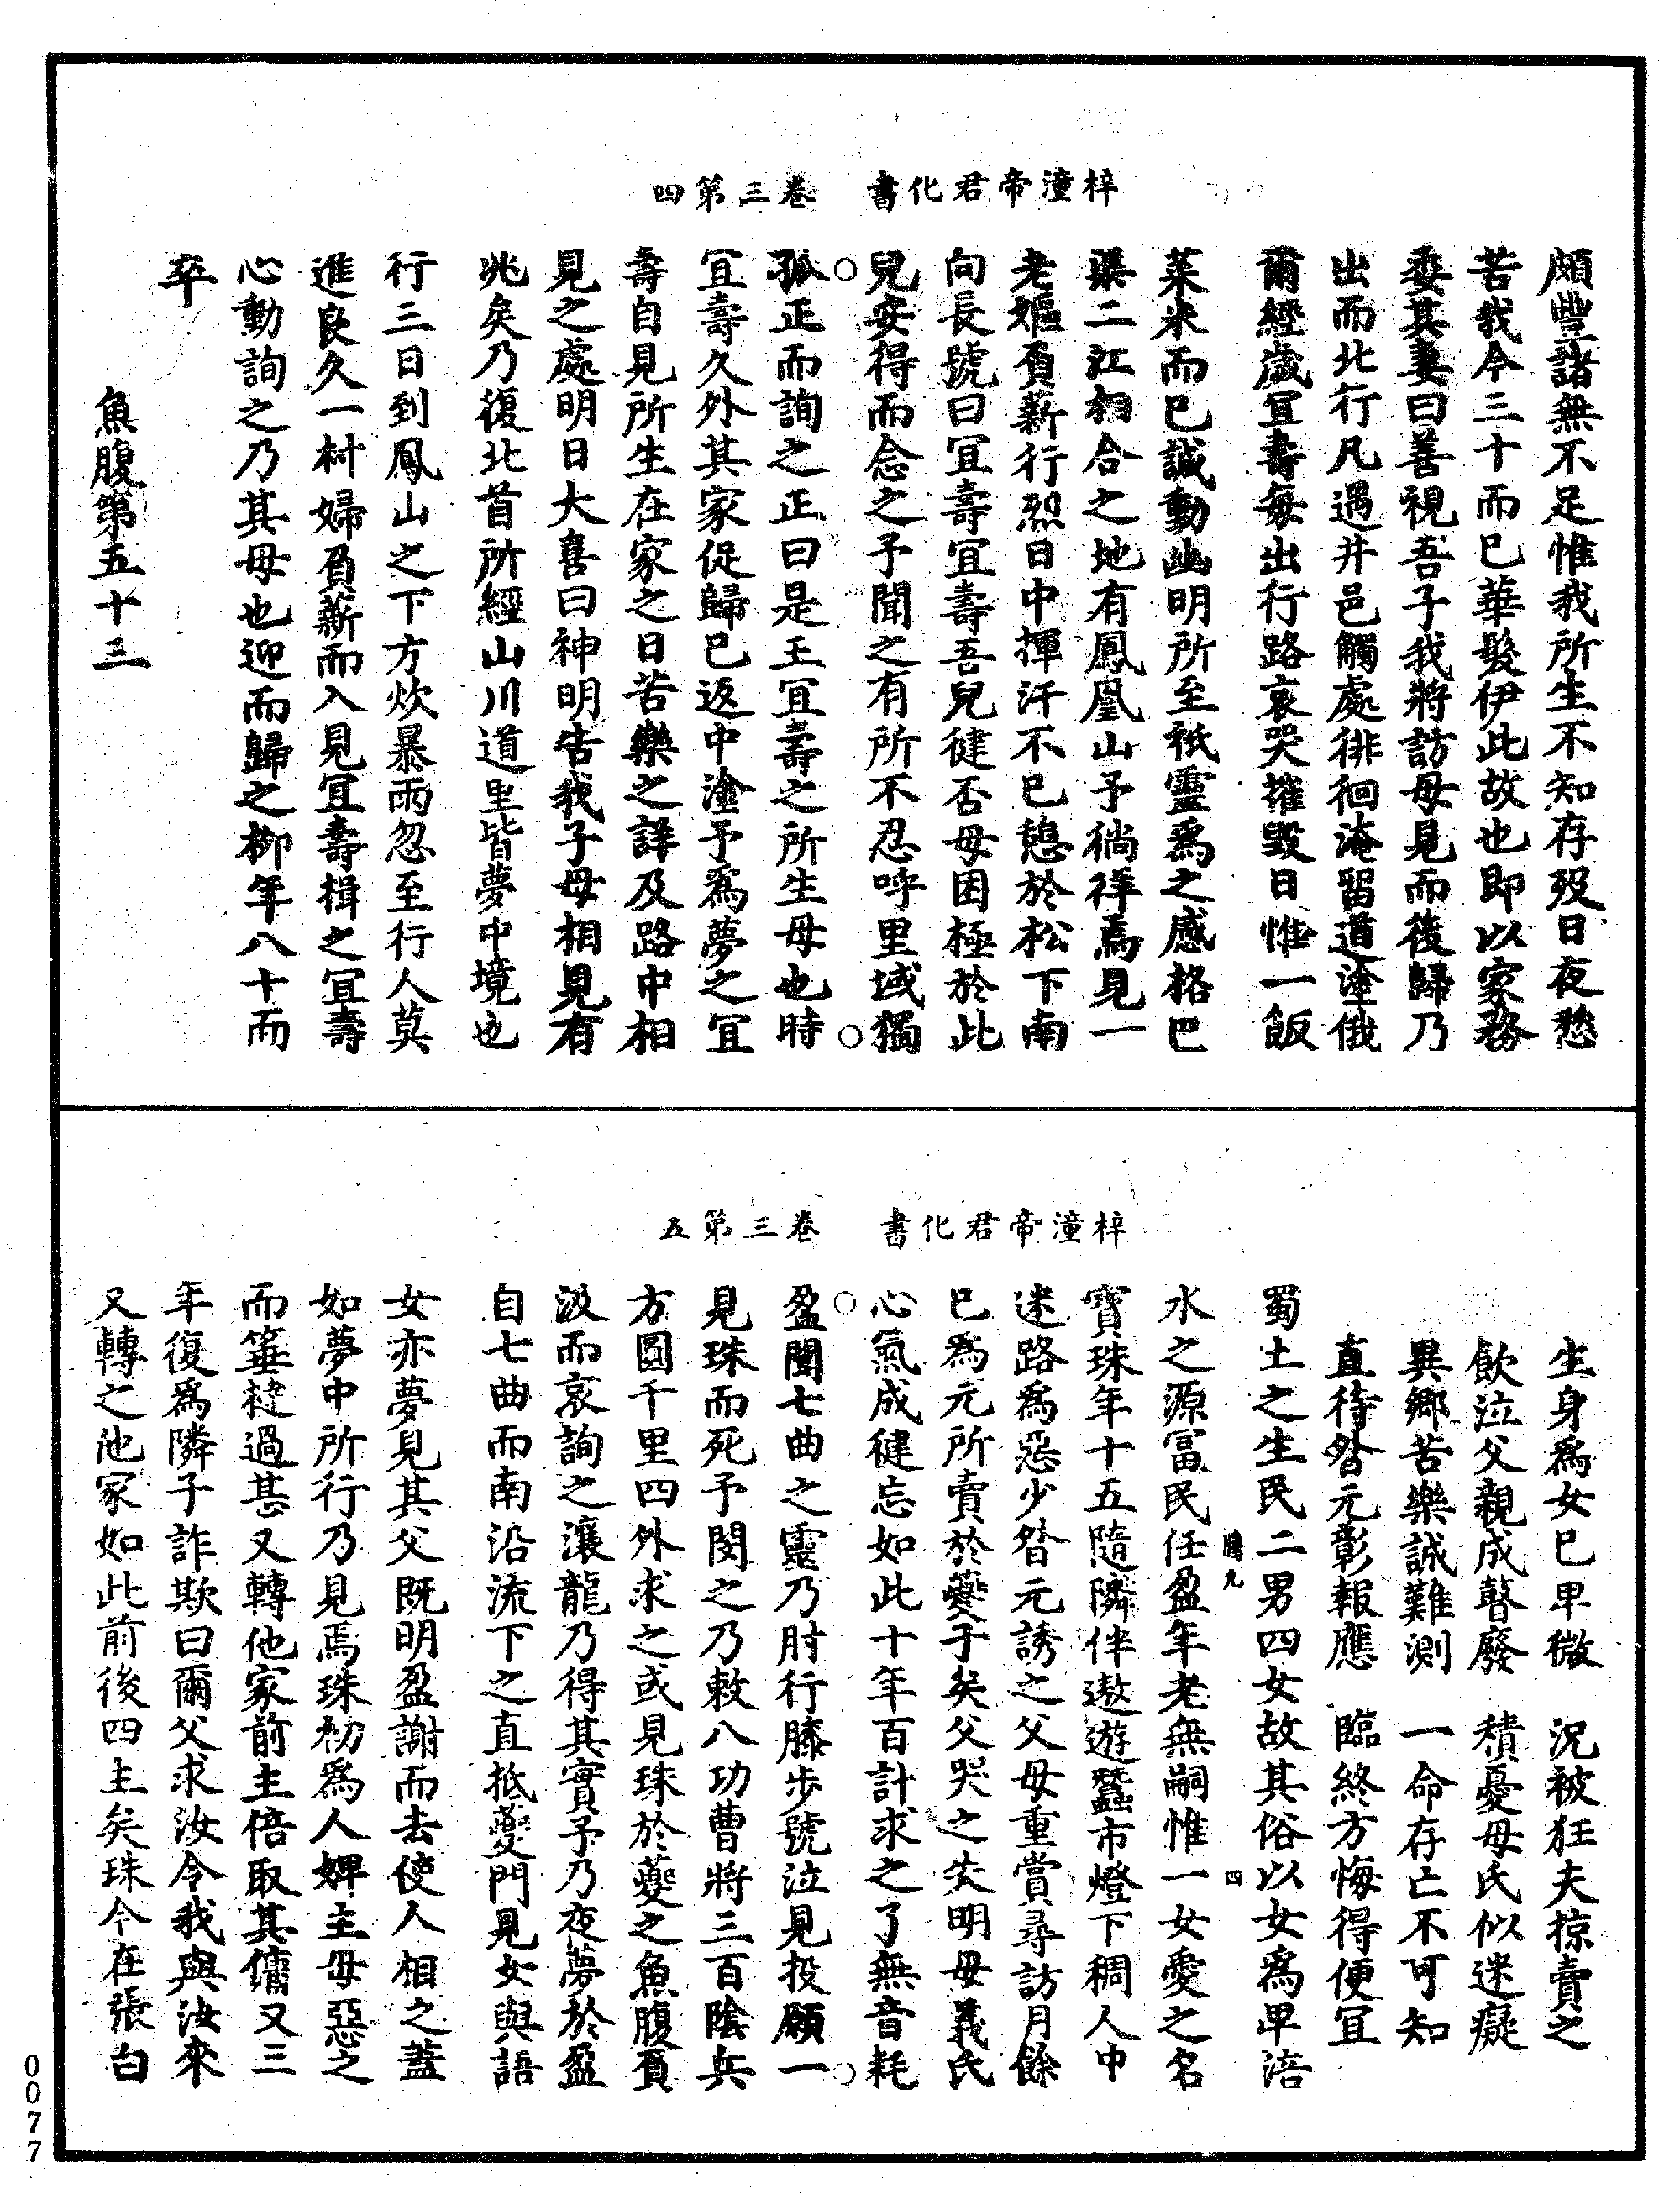 梓潼帝君化書　卷三第四
頗豐諸無不足惟我所生不知存歿日夜愁
苦我今三十而巳華髮伊此故也即以家務
委其妻曰善視吾子我將訪母見而後歸乃
出而北行凡遇井邑觸處徘徊淹留道塗俄
爾經歲冝壽每出行路哀哭摧毀日惟一飯
菜米而巳誠動幽明所至祇靈爲之感格巴
渠二江相合之地有鳳凰山予徜徉焉見一
老嫗負薪行烈日中揮汗不巳憇於松下南
向長號曰冝壽冝壽吾兒健否母困極於此
兒安得而念之予聞之有所不忍呼里域獨
孤正而詢之正曰是王冝壽之所生母也時
冝壽久外其家促歸巳返中塗予爲夢之冝
壽自見所生在家之日苦樂之詳及路中相
見之處明日大喜曰神明告我子母相見有
兆矣乃復北首所經山川道里皆夢中境也
行三日到鳳山之下方炊暴雨忽至行人莫
進良久一村婦負薪而入見冝壽揖之冝壽
心動詢之乃其母也迎而歸之柳年八十而
卒
魚腹第五十三
梓潼帝君化書　卷三第五
生身爲女巳卑微　況被狂夫掠賣之
飲泣父親成瞽廢　積憂母氏似迷癡
異鄉苦樂誠難測　一命存亡不可知
直待昝元彰報應　臨終方悔得便冝
蜀土之生民二男四女故其俗以女爲卑涪
騰九　四
水之源富民任盈年老無嗣惟一女愛之名
寶珠年十五隨隣伴遨遊蠶市燈下稠人中
迷路爲惡少昝元誘之父母重賞尋訪月餘
巳爲元所賣於夔子矣父哭之失明母義氏
心氣成健忘如此十年百計求之了無音耗
盈聞七曲之靈乃肘行膝步號泣見投願一
見珠而死予閔之乃敕八功曹將三百陰兵
方圓千里四外求之或見珠於夔之魚腹負
汲而哀詢之瀼龍乃得其實予乃夜夢於盈
自七曲而南沿流下之直抵夔門見女與語
女亦夢見其父既明盈謝而去使人相之蓋
如夢中所行乃見焉珠初爲人婢主母惡之
而箠撻過甚又轉他家前主倍取其傭又三
年復爲隣子詐欺曰爾父求汝令我與汝來
又轉之他家如此前後四主矣珠今在張白
0077